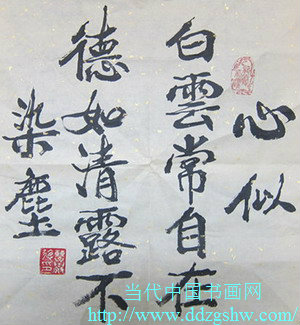 心似
白雲常自在
德如清露不
染塵
当代中国书画网
www.ddzgshw.com